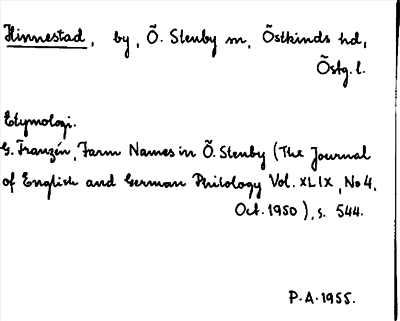 Hinnestad, by, Ö. Stenby sn, Östkinds hd,
Östg. l.
Etymologi.
G. Franzén, Farm Names in Ö. Stenby (The Journal
of English and German Philology Vol. XLIX, No 4,
Oct. 1950), s. 544.
P.A. 1955.